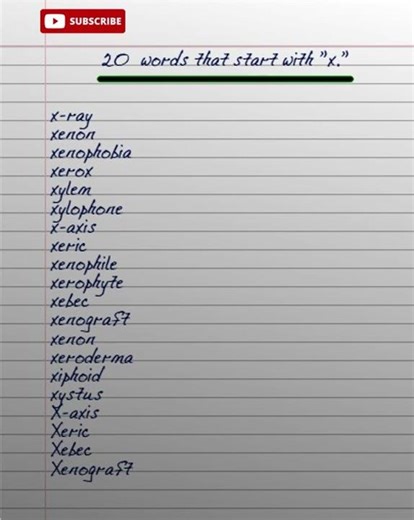 SUBSCRIBE
20 words that start with "x."
x-ray
xenon
xenophobia
xerox
xylem
xylophone
x-axis
xeric
xenophile
xerophyte
xebec
xenograft
xenon
xeroderma
xiphoid
xystus
X-axis
Xeric
Xebec
Xenograft